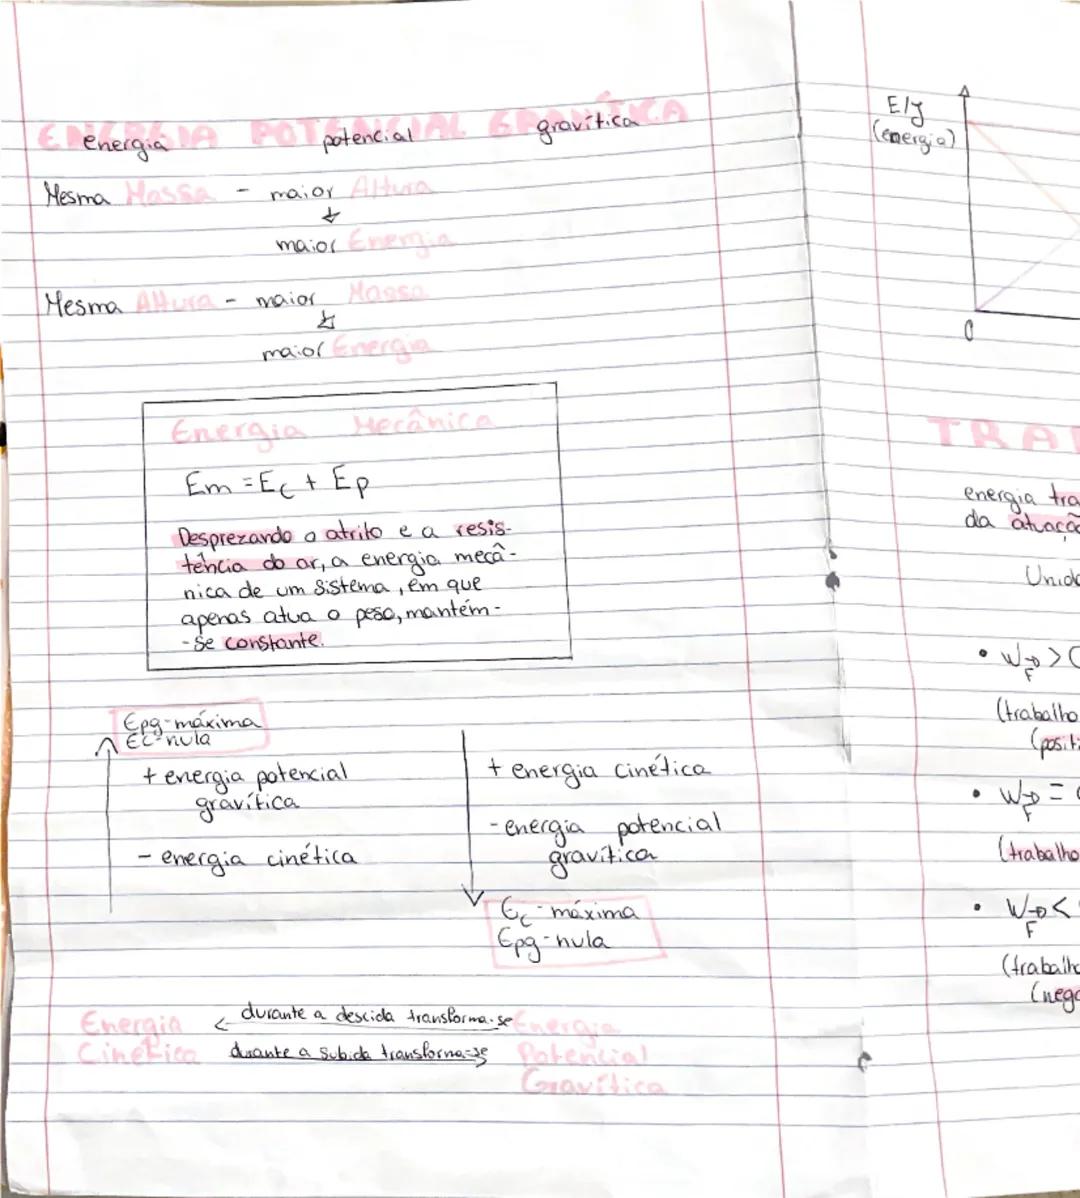 ENERGIA POTENCIAL GRAVÍTICA
energia potencial gravítica
Mesma Massa - maior Altura
maior Energia
Mesma Altura - maior Massa
maior Energia
Energia Mecânica
Em = Ec + Ep
Desprezando o atrito e a resis-
tência do ar, a energia mecâ-
nica de um sistema, em que
apenas atua o peso, mantém-
-se constante.
Epg-máxima
Ec-nula
+ energia potencial
gravítica
- energia cinética
+ energia cinética
- energia potencial
gravítica
Ec-máxima
Epg-nula
Energia durante a descida transforma-se Energia
Cinética durante a subida transforma-se Potencial
Gravítica
E/J
(energia)
0
TRA
energia tra
da atuaçã
Unid
• W F > 0
(trabalho
(positi
• W F =
(trabalho
• W F <
(trabalho
(nega